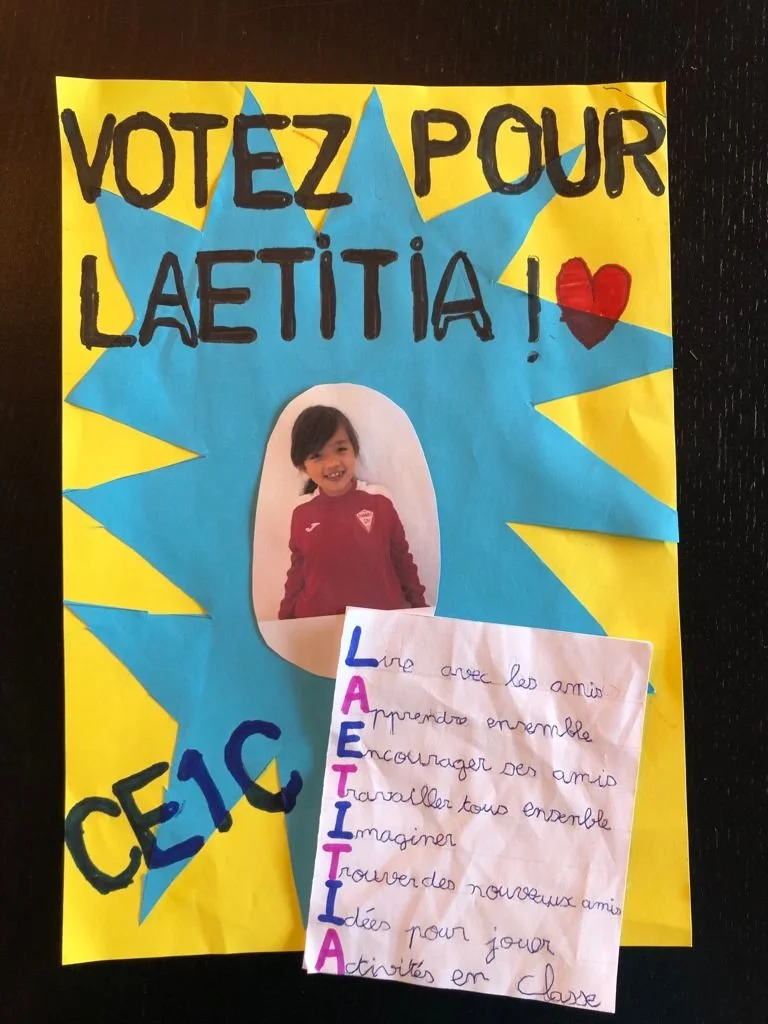 VOTEZ POUR
LAETITIA !
CE1C
Lire avec les amis
Apprendre ensemble
Encourager ses amis
Travailler tous ensemble
Imaginer
Trouver des nouveaux amis
Idées pour jouer
Activités en classe